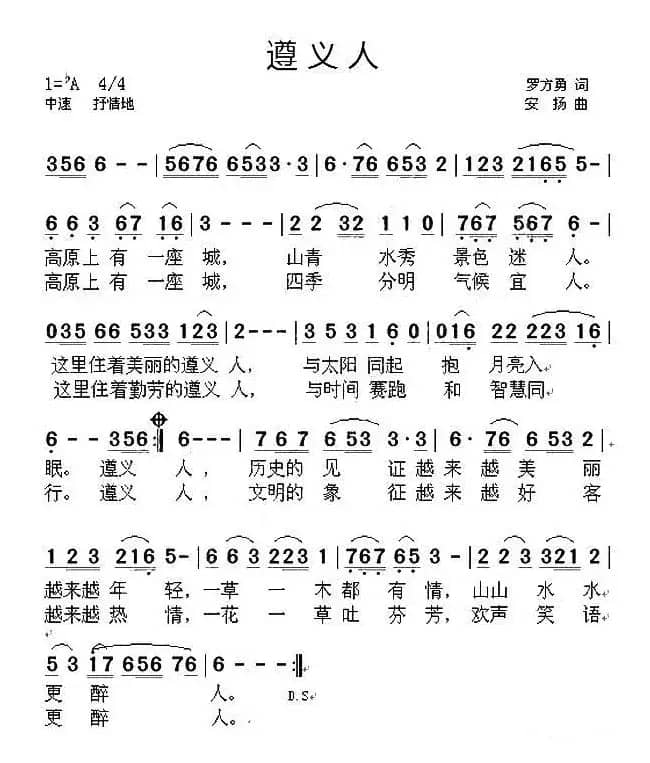 遵义人
1=♭A 4/4 罗方勇 词
中速 抒情地 安 扬 曲
356 6 - - | 5676 6533·3 | 6·76 653 2 | 123 2165 5- |
6 6 3 67 16 | 3 - - - | 2 2 32 1 1 0 | 767 567 6 - |
高原上 有 一座 城, 山青 水秀 景色 迷 人。
高原上 有 一座 城, 四季 分明 气候 宜 人。
035 66 533 123 | 2--- | 3 5 3 1 6 0 | 016 22 223 16 |
这里住着美丽的遵义 人, 与太阳 同起 抱 月亮入
这里住着勤劳的遵义 人, 与时间 赛跑 和 智慧同
6 - - 356 :| 6--- | 7 6 7 6 53 3·3 | 6· 76 6 53 2 |
眠。 遵义 人, 历史的 见 证越来 越 美 丽
行。 遵义 人, 文明的 象 征越来 越 好 客
1 2 3 216 5- | 6 6 3 223 1 | 767 65 3 - | 2 2 3 321 2 |
越来越 年 轻,一草 一 木都 有 情, 山山 水 水
越来越 热 情,一花 一 草吐 芬 芳, 欢声 笑 语
5 3 17 656 76 | 6 - - - :|
更 醉 人。 D.S
更 醉 人。